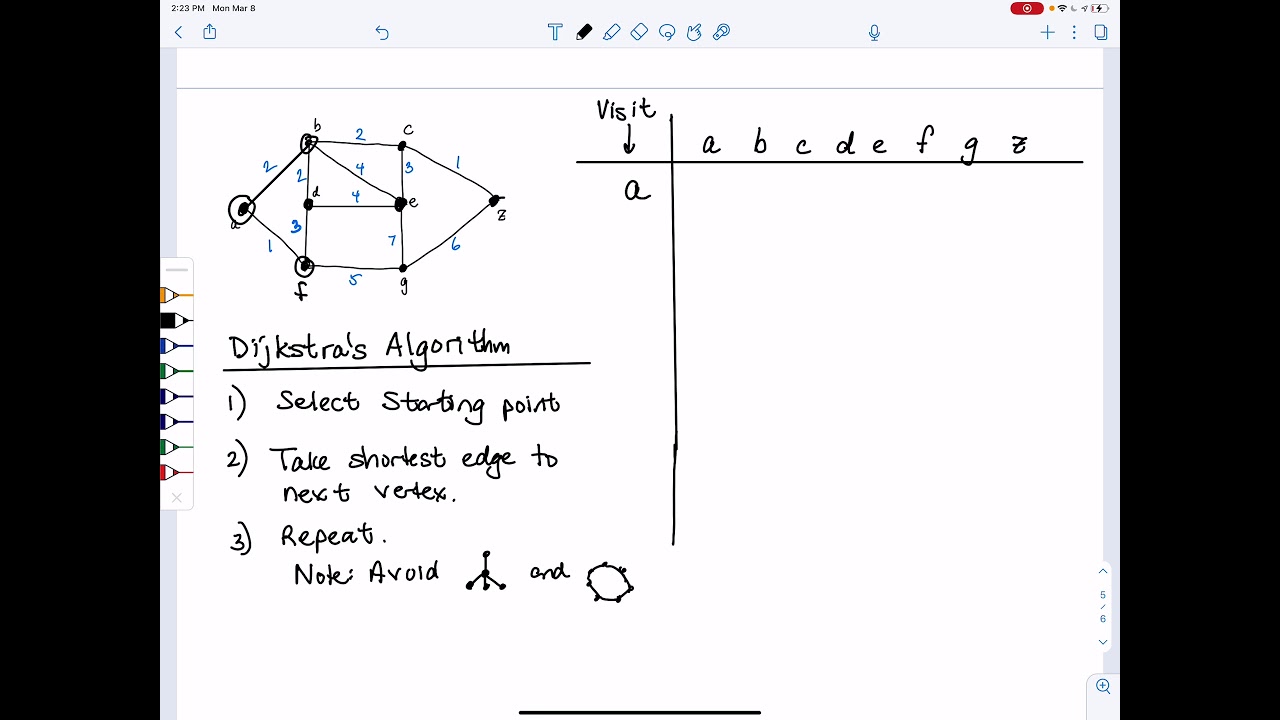 2:23 PM Mon Mar 8
b
2
c
2
2
4
3
1
d
4
e
a
z
3
1
7
6
5
f
g
Visit
a b c d e f g z
a
Dijkstra's Algorithm
1) Select Starting point
2) Take shortest edge to
next vertex.
3) Repeat.
Note: Avoid and
5
/
6